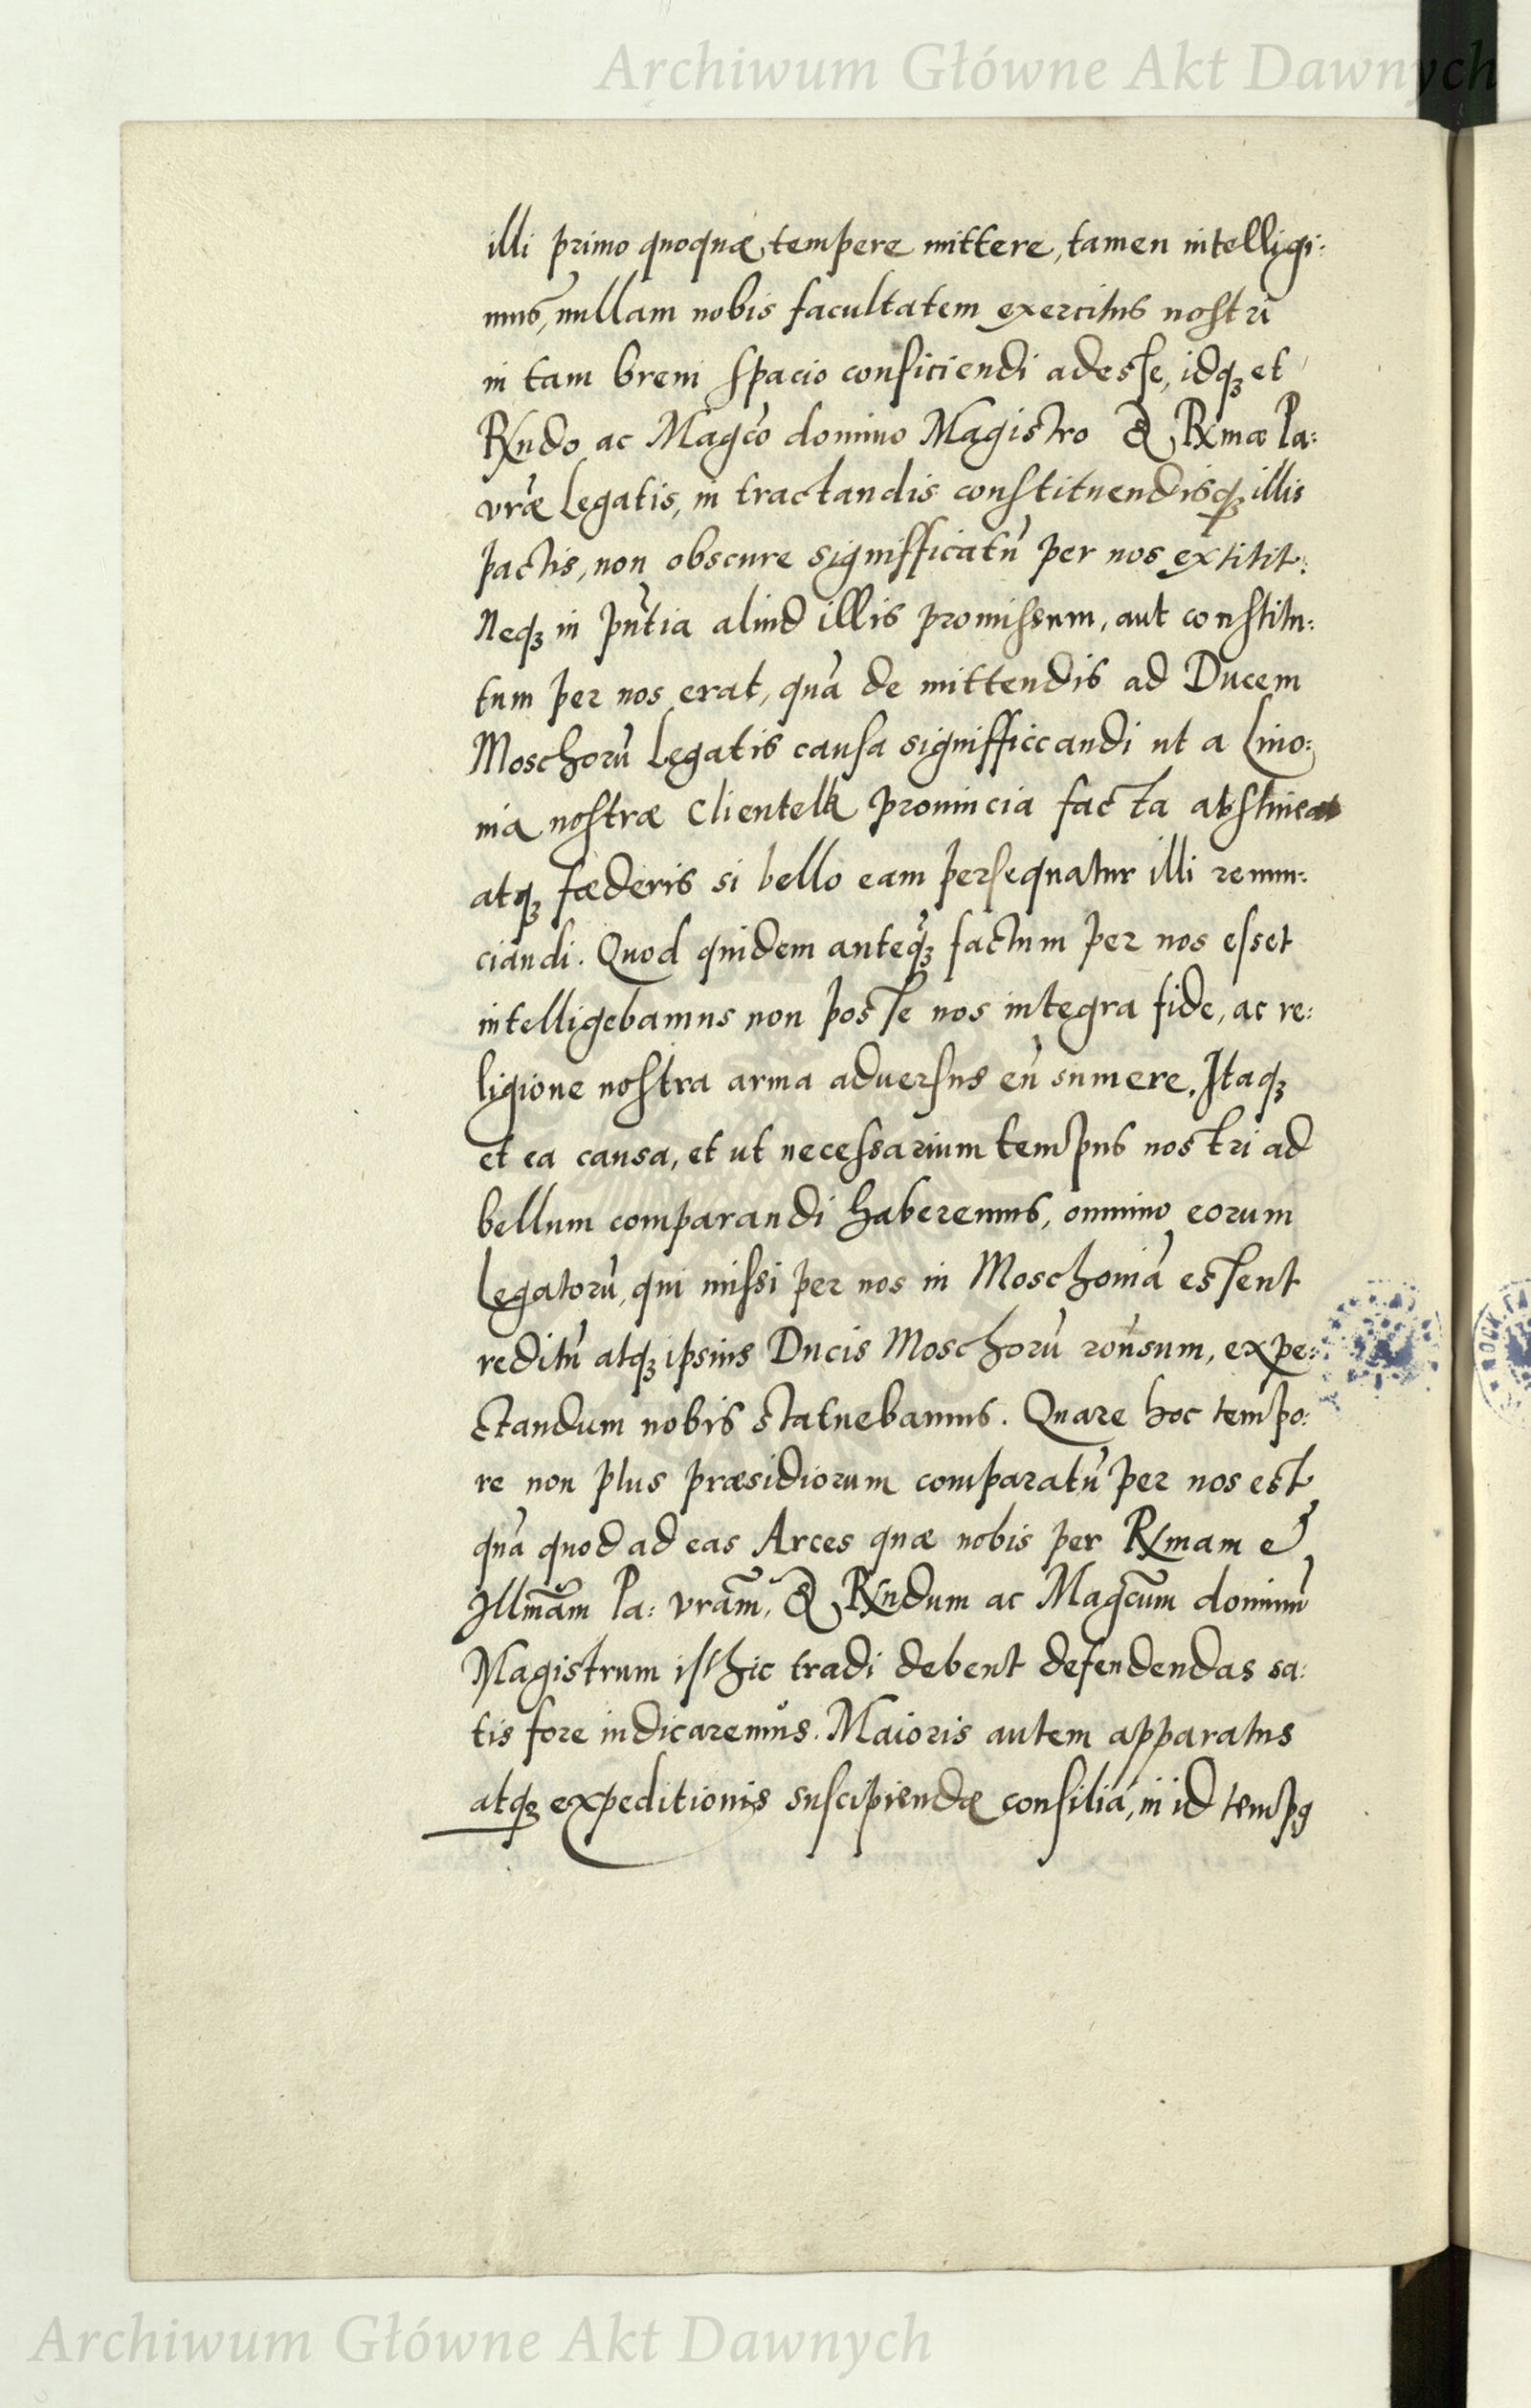 Archiwum Główne Akt Dawnych
illi primo quoquæ tempere mittere, tamen intelligi:
mus, nullam nobis facultatem exercitus nostri
in tam breui spacio conficiendi adesse, idqꝫ et
Rndo ac Magco domino Magistro & Rmæ Pa:
vræ legatis, in tractandis constituendisqꝫ illis
pactis, non obscure signifficatū per nos extitit:
Neqꝫ in pñtia aliud illis promissum, aut constitu:
tum per nos erat, quā de mittendis ad Ducem
Moschorū legatis causa signifficcandi ut a Liuo:
nia nostræ Clientelæ prouincia facta abstineat
atqꝫ fœderis si bello eam persequatur illi renun:
ciandi. Quod quidem anteqꝫ̃ factum per nos esset
intelligebamus non posse nos integra fide, ac re:
ligione nostra arma aduersus eū sumere. Itaqꝫ
et ea causa, et ut necessarium tempus nostri ad
bellum comparandi haberemus, omnino eorum
legatorū, qui missi per nos in Moschouiā essent
reditū atqꝫ ipsius Ducis Moschorū rōnsum, expe:
ctandum nobis statuebamus. Quare hoc tempo:
re non plus præsidiorum comparatū per nos est
quā quod ad eas Arces quæ nobis per Rmam et
Illmãm Pa: vrãm, & Rndum ac Magcũm dominū
Magistrum isthic tradi debent defendendas sa:
tis fore iudicaremus. Maioris autem apparatus
atqꝫ expeditionis suscipiendæ consilia, in id tempꝯ
Archiwum Główne Akt Dawnych